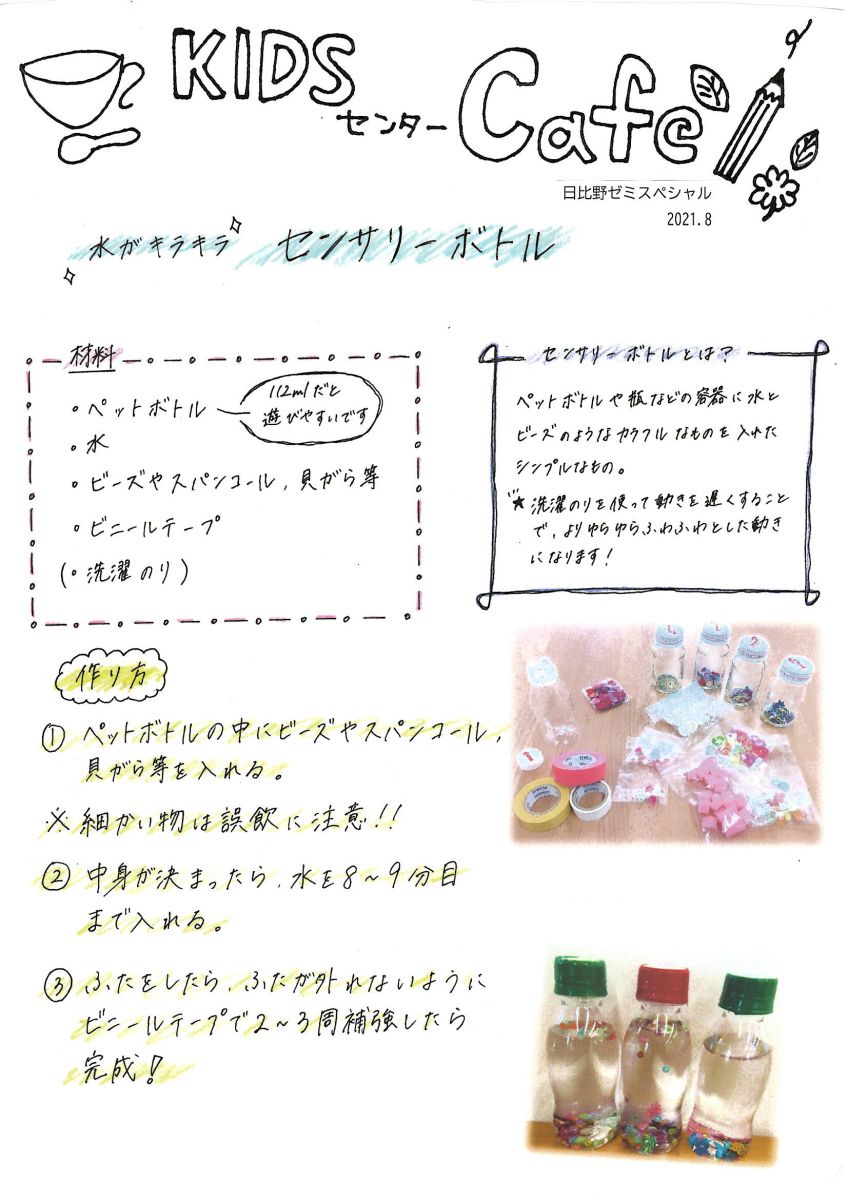 KIDS
センター Cafe
日比野ゼミスペシャル
2021.8
水がキラキラ センサリーボトル
材料
・ペットボトル
112mlだと
遊びやすいです
・水
・ビーズやスパンコール、貝がら等
・ビニールテープ
(・洗濯のり)
センサリーボトルとは?
ペットボトルや瓶などの容器に水と
ビーズのようなカラフルなものを入れた
シンプルなもの。
★洗濯のりを使って動きを遅くすること
で、よりゆらゆらふわふわとした動き
になります!
作り方
① ペットボトルの中にビーズやスパンコール、
貝がら等を入れる。
※細かい物は誤飲に注意!!
② 中身が決まったら、水を8~9分目
まで入れる。
③ ふたをしたら、ふたが外れないように
ビニールテープで2~3周補強したら
完成!